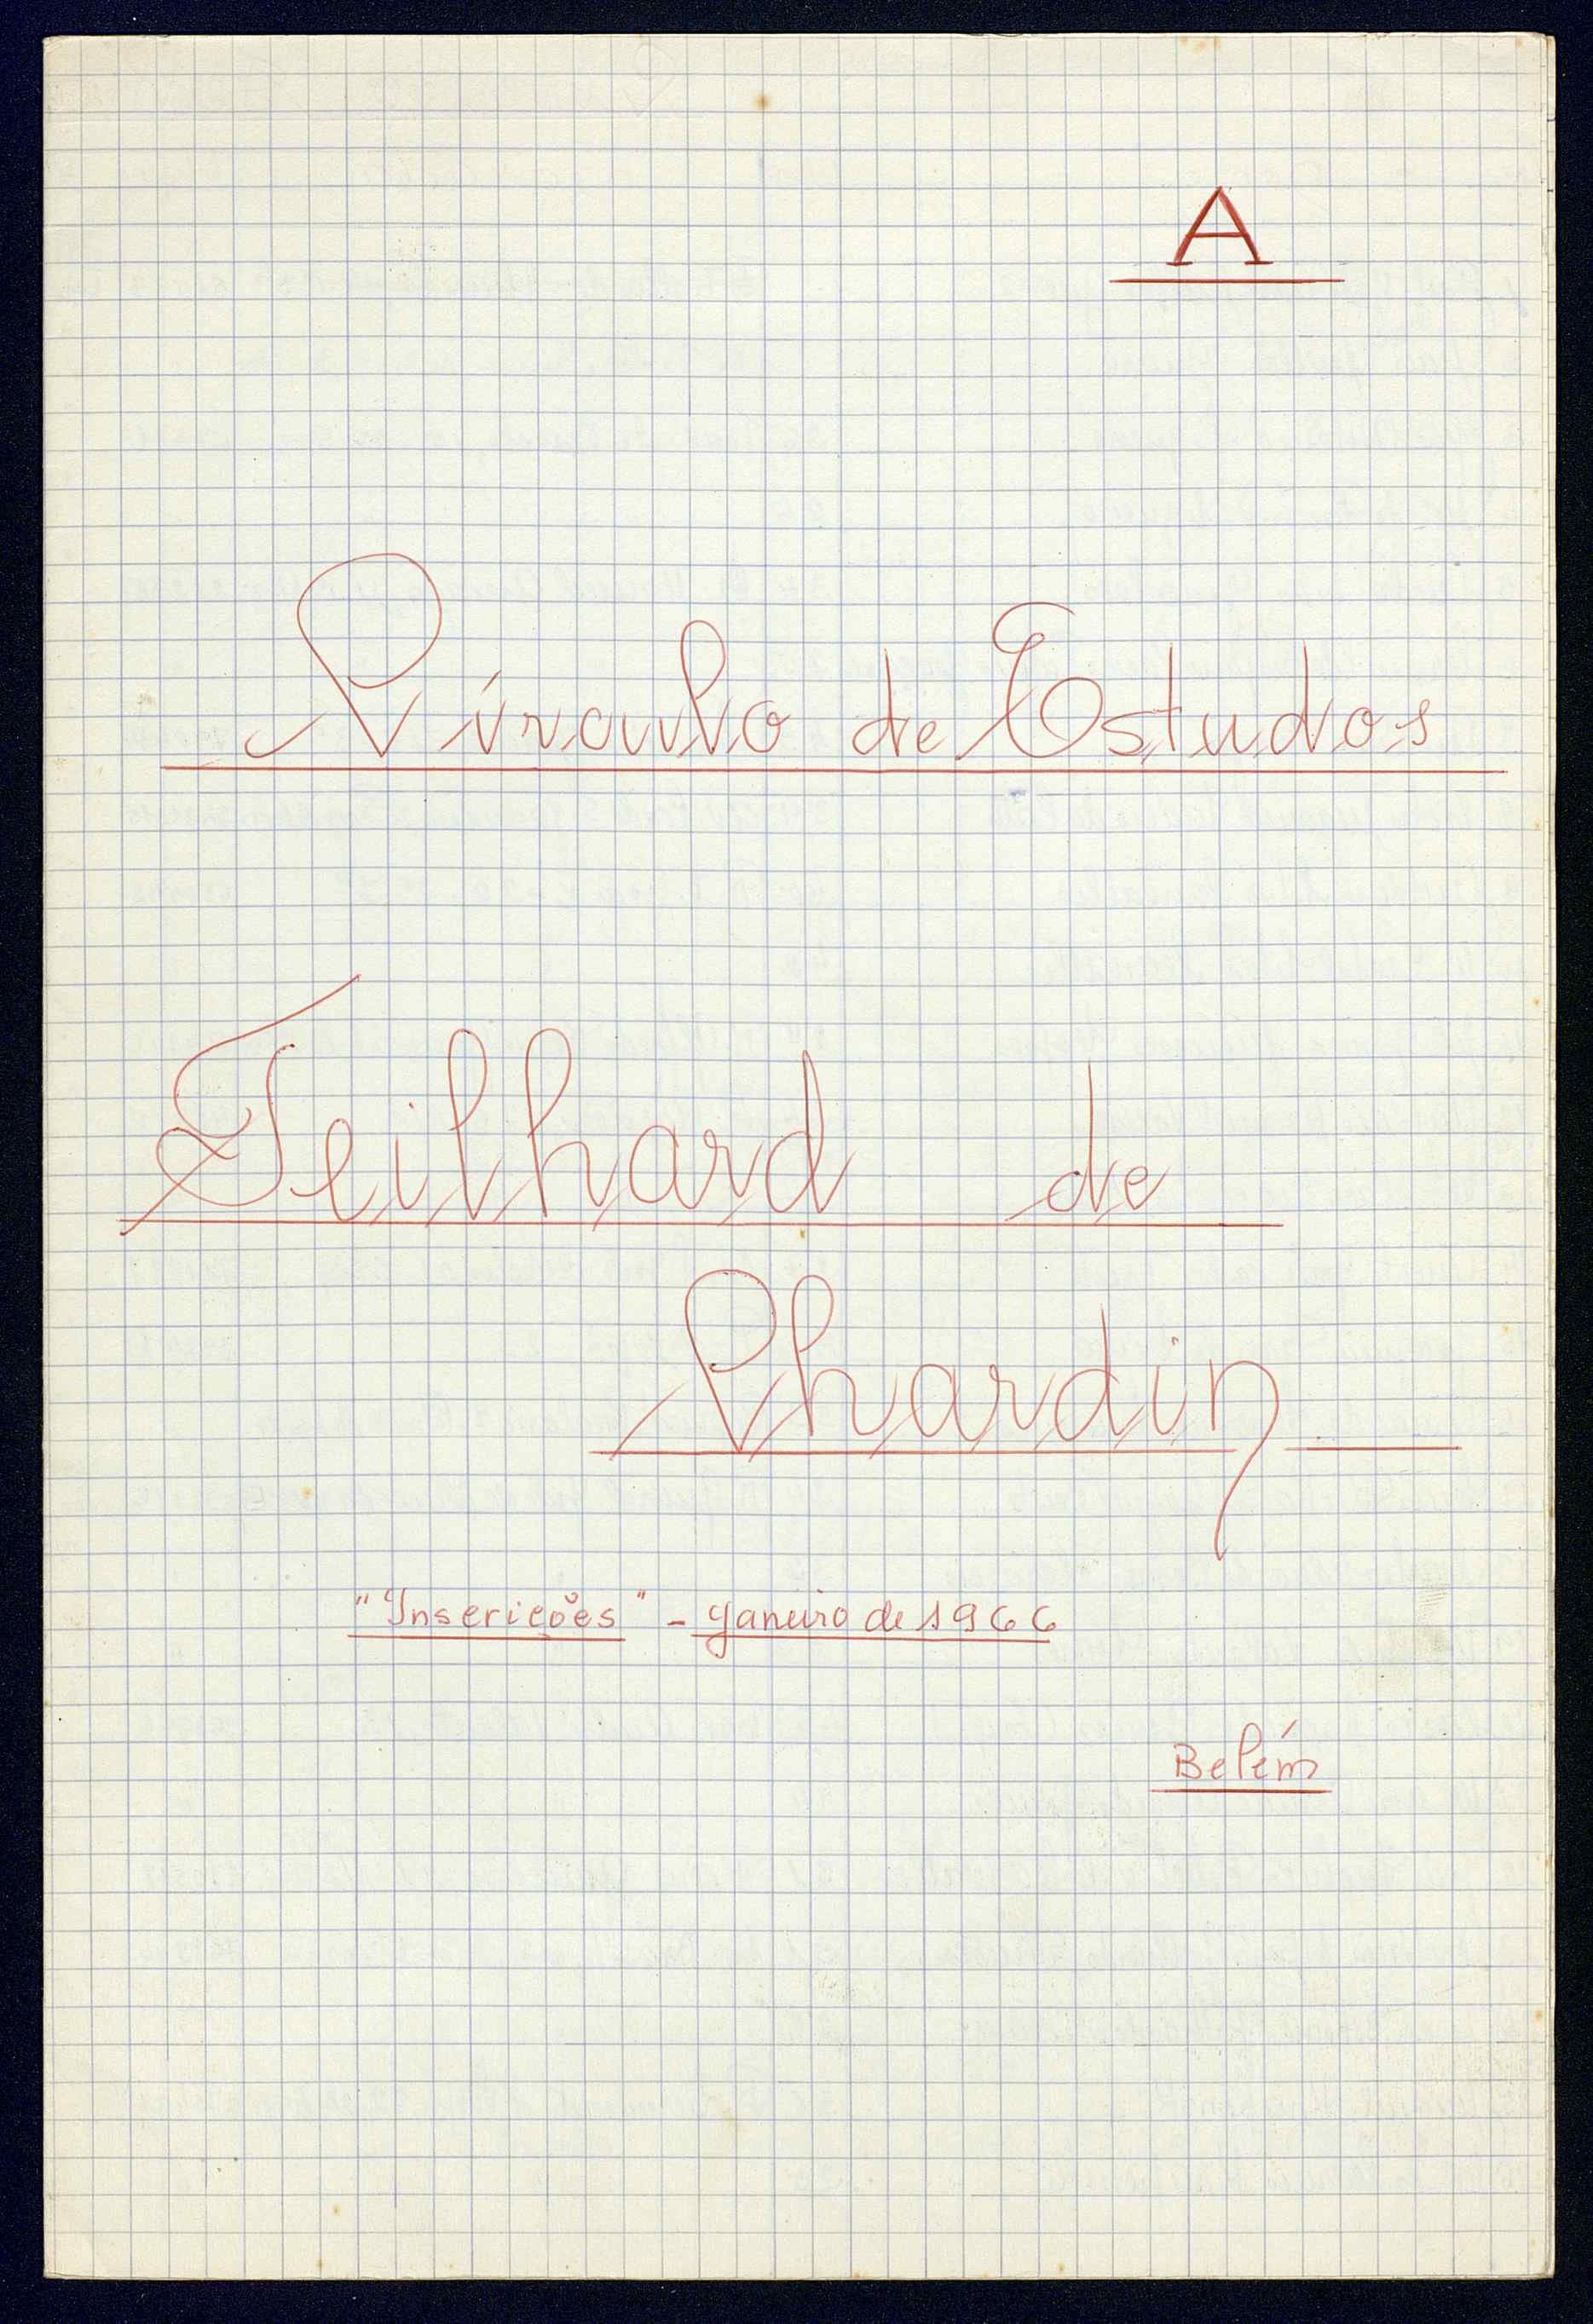 A
Círculo de Estudos
Teilhard de
Chardin
"Inscrições" - Janeiro de 1966
Belém